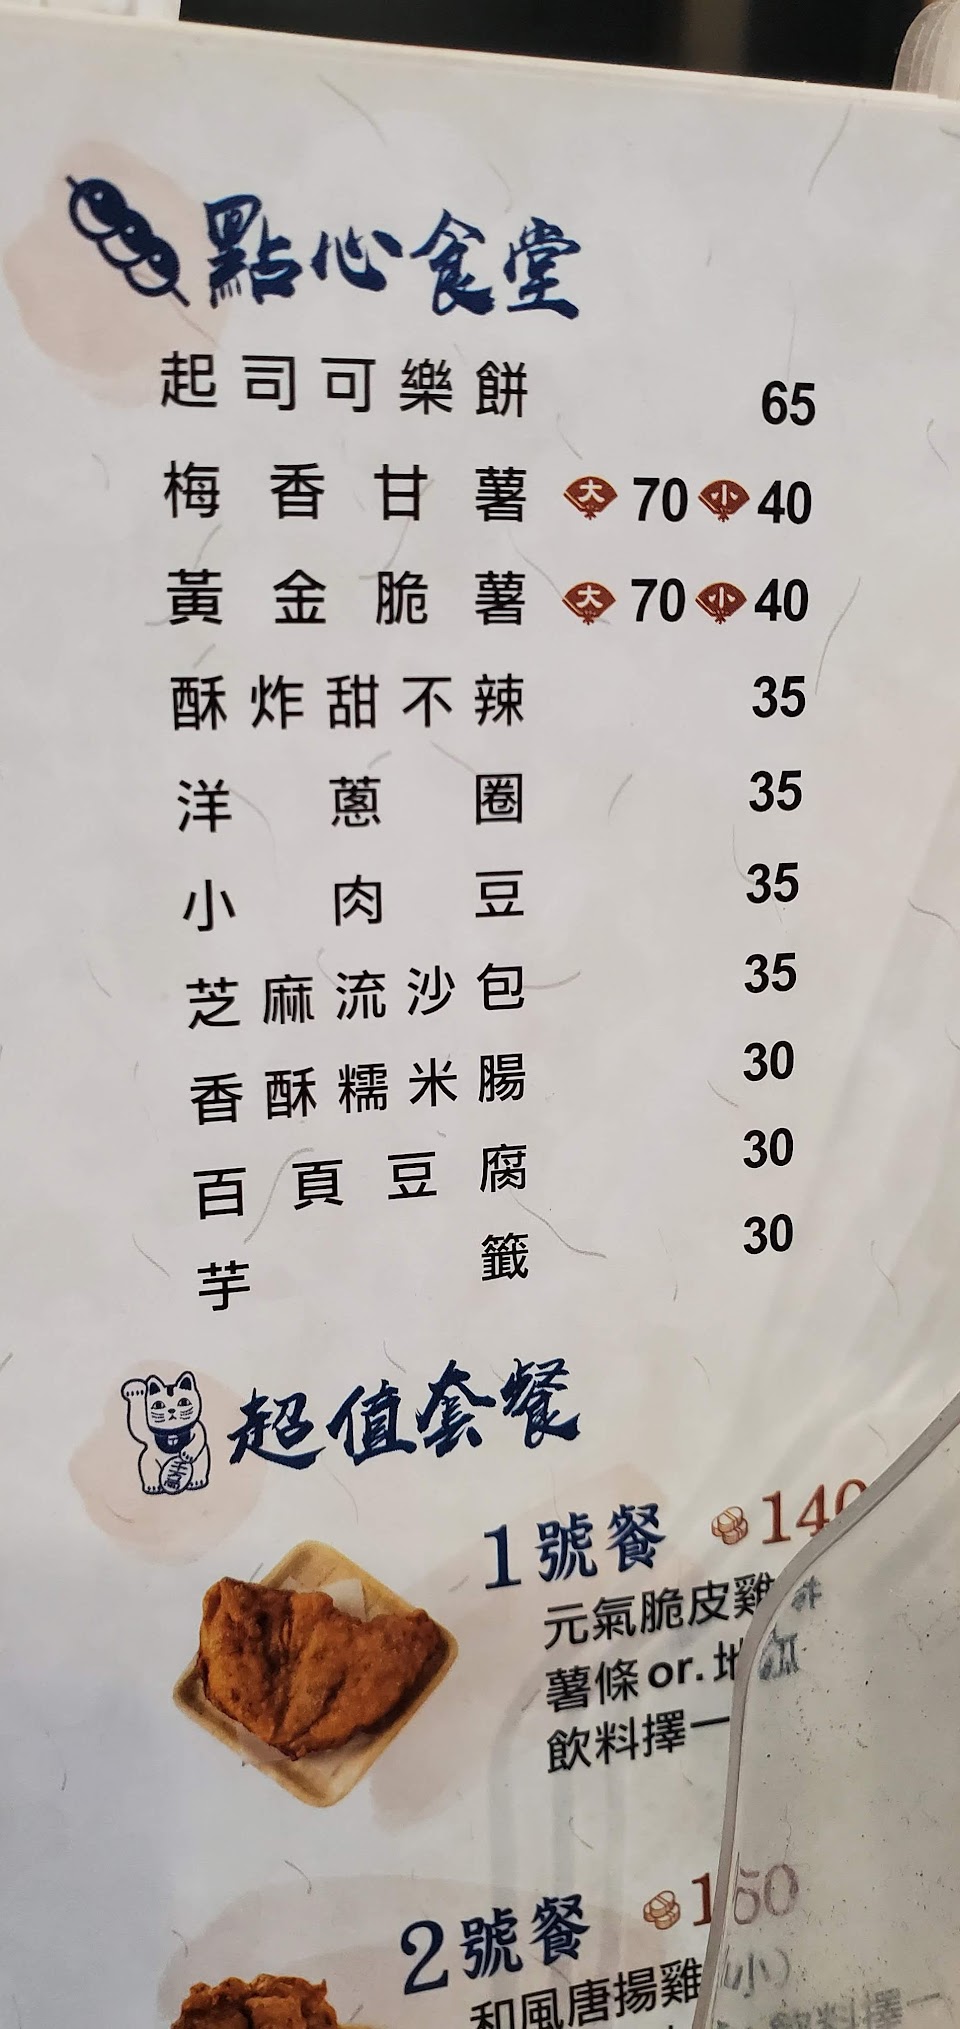 點心食堂
起司可樂餅 65
梅香甘薯 大 70 小 40
黃金脆薯 大 70 小 40
酥炸甜不辣 35
洋蔥圈 35
小肉豆 35
芝麻流沙包 35
香酥糯米腸 30
百頁豆腐 30
芋籤 30
超值套餐
1號餐 140
元氣脆皮雞
薯條or.地瓜
飲料擇一
2號餐 160
和風唐揚雞(小)
飲料擇一